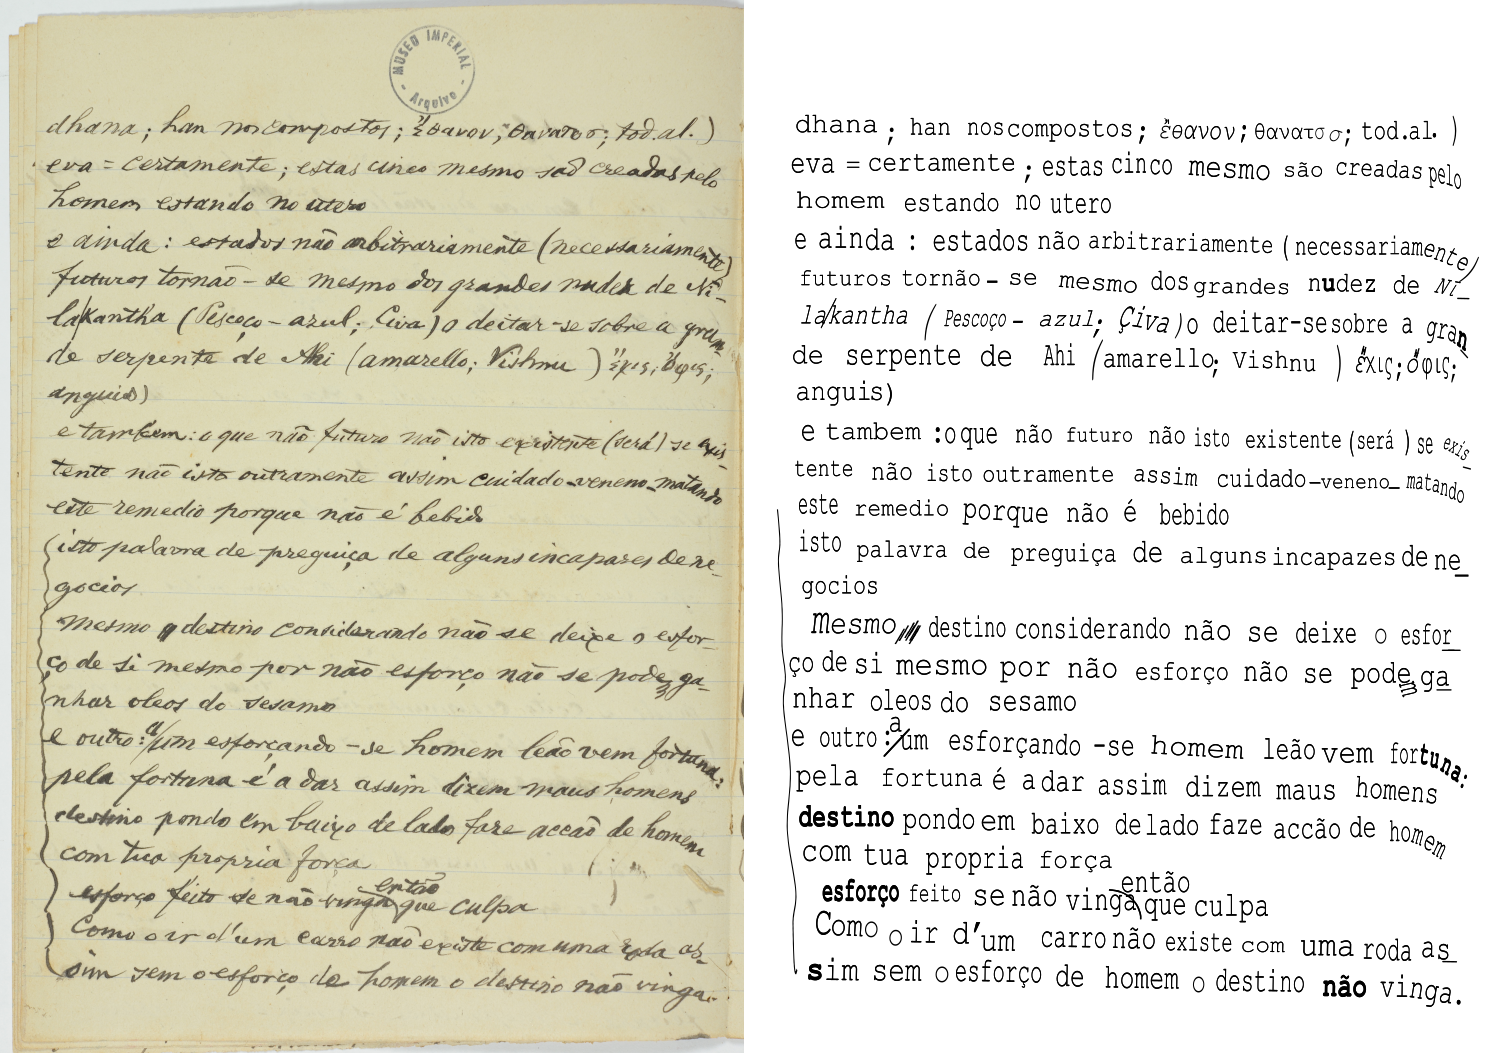 MUSEO IMPERIAL
- Arquivo -
dhana; han nos compostos; ἔθανον; θανατοσ; tod.al.)
eva = certamente; estas cinco mesmo são creadas pelo
homem estando no utero
e ainda: estados não arbitrariamente (necessariamente)
futuros tornão-se mesmo dos grandes nudez de Ni-
la/kantha (Pescoço-azul; Çiva) o deitar-se sobre a gran-
de serpente de Ahi (amarello; Vishnu) ἔχις; ὄφις;
anguis)
e tambem: o que não futuro não isto existente (será) se exis-
tente não isto outramente assim cuidado-veneno-matando
este remedio porque não é bebido
isto palavra de preguiça de alguns incapazes de ne-
gocios
Mesmo destino considerando não se deixe o esfor-
ço de si mesmo por não esforço não se pode ga-
nhar oleos do sesamo
e outro: a/um esforçando-se homem leão vem fortuna:
pela fortuna é a dar assim dizem maus homens
destino pondo em baixo de lado faze accão de homem
com tua propria força
então
esforço feito se não vinga que culpa
Como o ir d'um carro não existe com uma roda as-
sim sem o esforço de homem o destino não vinga.
dhana ; han nos compostos ; ἔθανον ; θανατσσ; tod.al. )
eva = certamente ; estas cinco mesmo são creadas pelo
homem estando no utero
e ainda : estados não arbitrariamente ( necessariamente)
futuros tornão - se mesmo dos grandes nudez de Ni_
la/kantha ( Pescoço - azul; Çiva ) o deitar-se sobre a gran_
de serpente de Ahi (amarello; Vishnu ) ἔχις; ὄφις;
anguis)
e tambem :o que não futuro não isto existente (será ) se exis_
tente não isto outramente assim cuidado-veneno_ matando
este remedio porque não é bebido
isto palavra de preguiça de alguns incapazes de ne_
gocios
Mesmo destino considerando não se deixe o esfor_
ço de si mesmo por não esforço não se pode ga_
nhar oleos do sesamo
e outro: a/um esforçando -se homem leão vem fortuna:
pela fortuna é a dar assim dizem maus homens
destino pondo em baixo de lado faze accão de homem
com tua propria força
então
esforço feito se não vinga\que culpa
Como o ir d'um carro não existe com uma roda as_
sim sem o esforço de homem o destino não vinga.